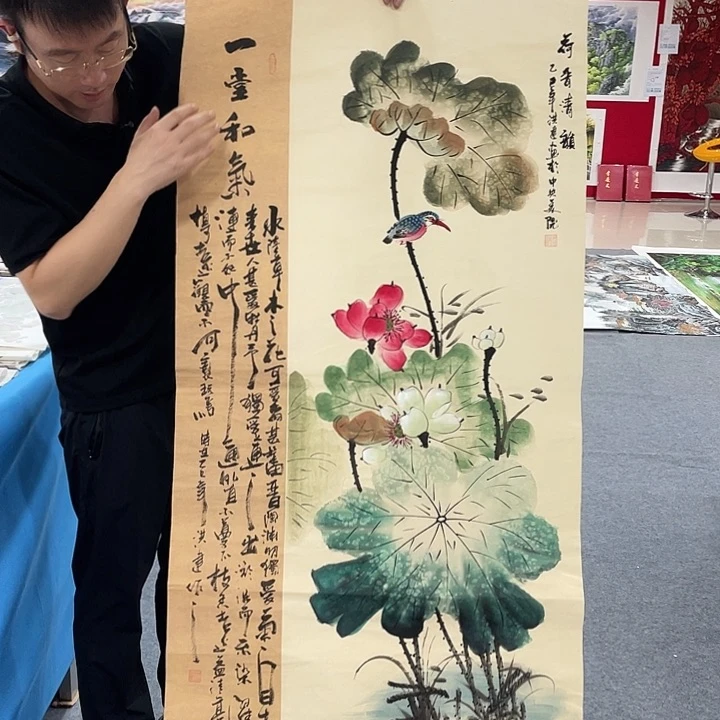 荷香清韻
乙巳年洪建畫於中央美院
一堂和氣
水陸草木之花可愛者甚蕃晉陶淵明獨愛菊自
來世人甚愛牡丹予獨愛蓮之出淤而不染
漣而不妖中通外直不蔓不枝香遠益清
植可遠觀而不可褻玩焉
時在乙巳年洪建作